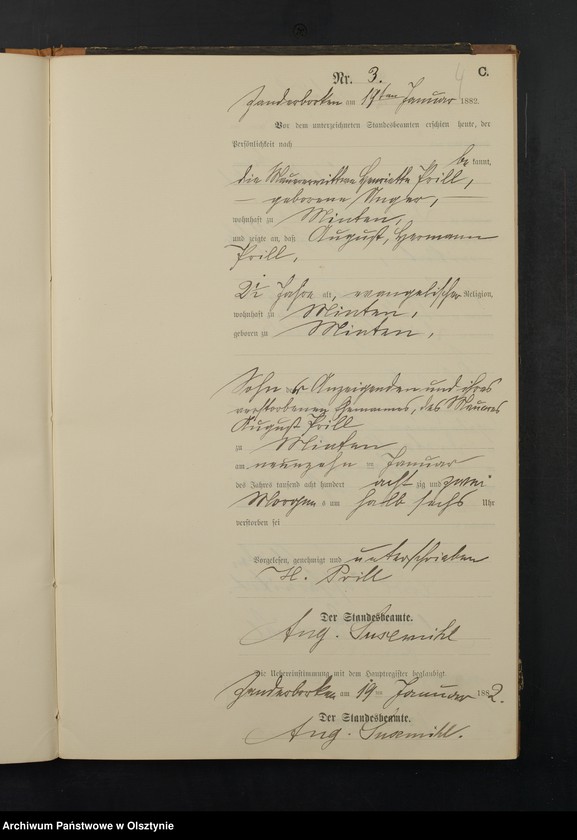 C.
Nr. 3.
4
Zanderborken am 19ten Januar 1882.
Vor dem unterzeichneten Standesbeamten erschien heute, der
Persönlichkeit nach
be kannt,
die Maurerwittwe Henriette Prill,
geborene Unger,
wohnhaft zu Minten,
und zeigte an, daß August, Hermann
Prill,
Jahre alt, evangelischer Religion,
wohnhaft zu Minten,
geboren zu Minten,
Sohn der Anzeigenden und ihres
verstorbenen Ehemannes, des Maurers
August Prill
zu Minten
am neunzehn ten Januar
des Jahres tausend acht hundert acht zig und zwei
Morgen s um halb sechs Uhr
verstorben sei
Vorgelesen, genehmigt und unterschrieben
H. Prill
Der Standesbeamte.
Aug. Susemihl
Die Uebereinstimmung mit dem Hauptregister beglaubigt.
Zanderborken am 19 ten Januar 1882.
Der Standesbeamte.
Aug. Susemihl.
Archiwum Państwowe w Olsztynie